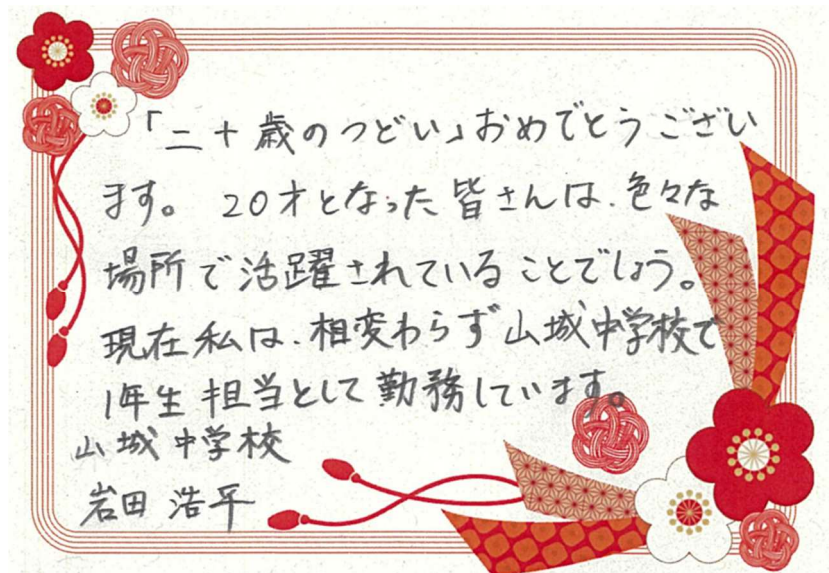 「二十歳のつどい」おめでとうござい
ます。 20才となった皆さんは、色々な
場所で活躍されていることでしょう。
現在私は、相変わらず山城中学校で
1年生担当として勤務しています。
山城中学校
岩田 浩平